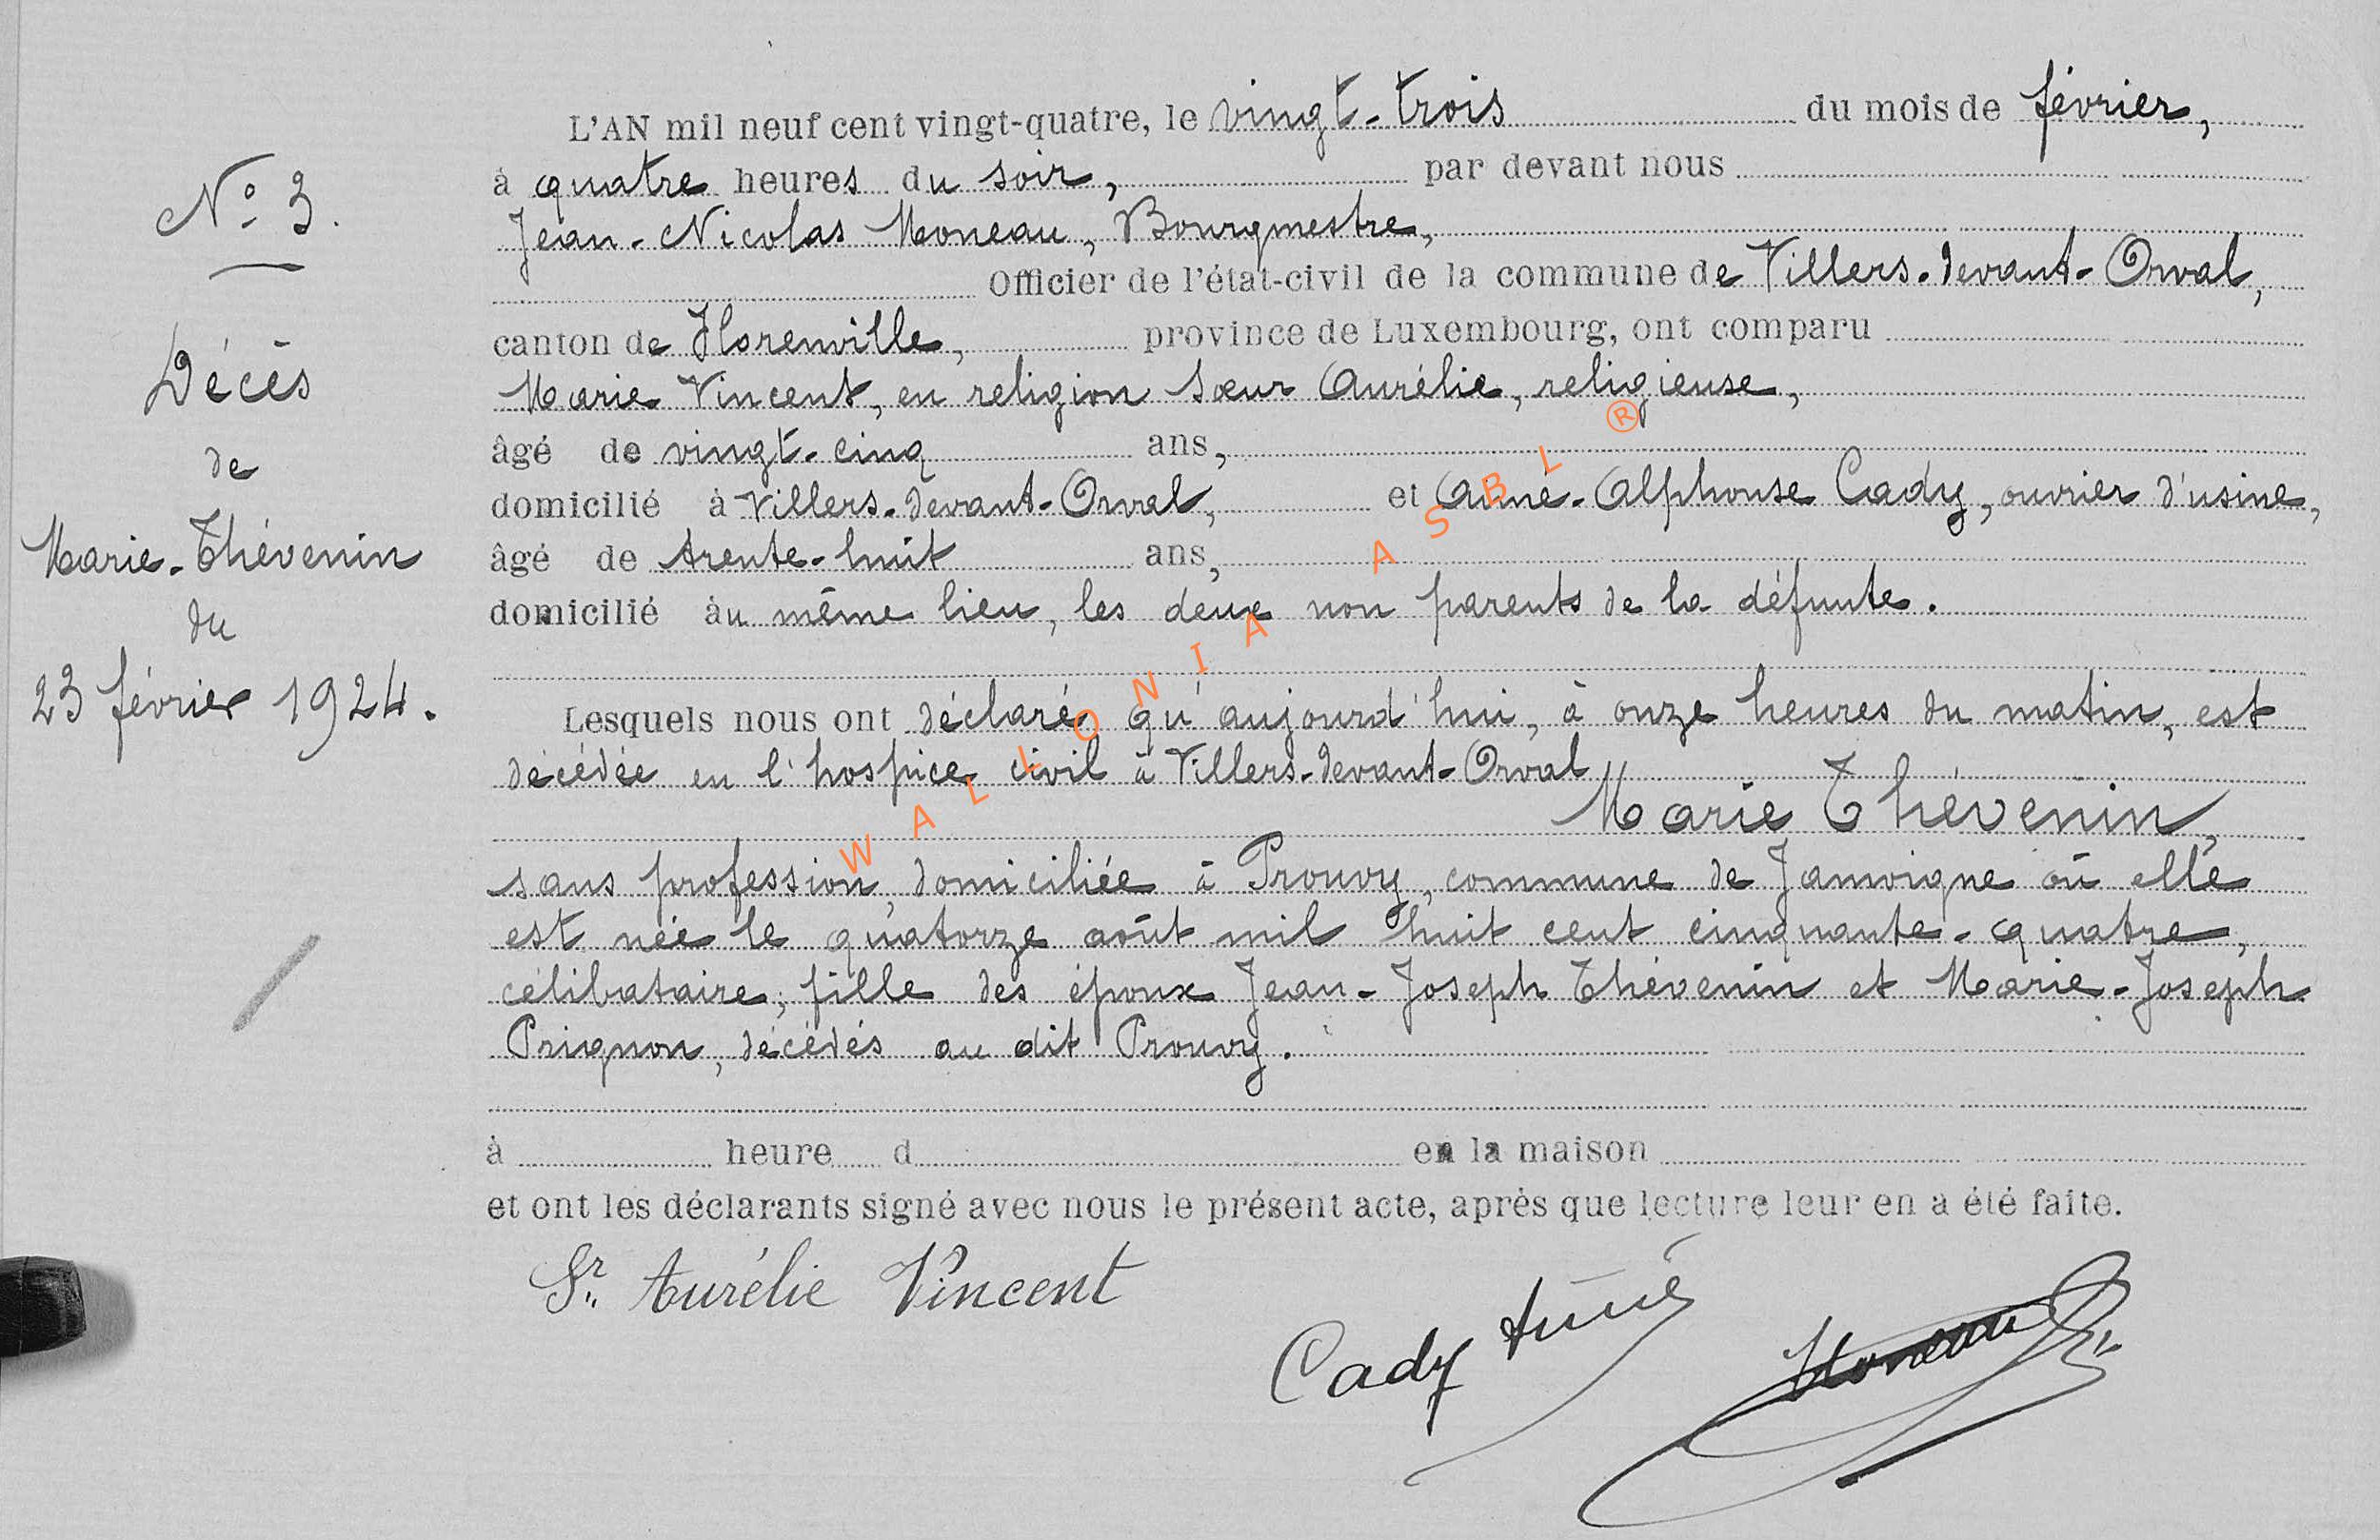 N° 3.
Décès
de
Marie-Thévenin
du
23 février 1924.
L'AN mil neuf cent vingt-quatre, le vingt-trois du mois de février,
à quatre heures du soir, par devant nous
Jean-Nicolas Moneau, Bourgmestre,
Officier de l'état-civil de la commune de Villers-devant-Orval,
canton de Florenville, province de Luxembourg, ont comparu
Marie Vincent, en religion Sœur Aurélie, religieuse,
âgé de vingt-cinq ans,
domicilié à Villers-devant-Orval, et Aimé-Alphonse Cady, ouvrier d'usine,
âgé de trente-huit ans,
domicilié au même lieu, les deux non parents de la défunte.
Lesquels nous ont déclaré qu'aujourd'hui, à onze heures du matin, est
décédée en l'hospice civil à Villers-devant-Orval
Marie Thévenin,
sans profession, domiciliée à Prouvy, commune de Jamoigne où elle
est née le quatorze août mil huit cent cinquante-quatre,
célibataire; fille des époux Jean-Joseph Thévenin et Marie-Joseph
Prignon, décédés au dit Prouvy.
à heure d en la maison
et ont les déclarants signé avec nous le présent acte, après que lecture leur en a été faite.
Sr. Aurélie Vincent
Cady Aimé
Moneau
WALLONIA ASBL ®